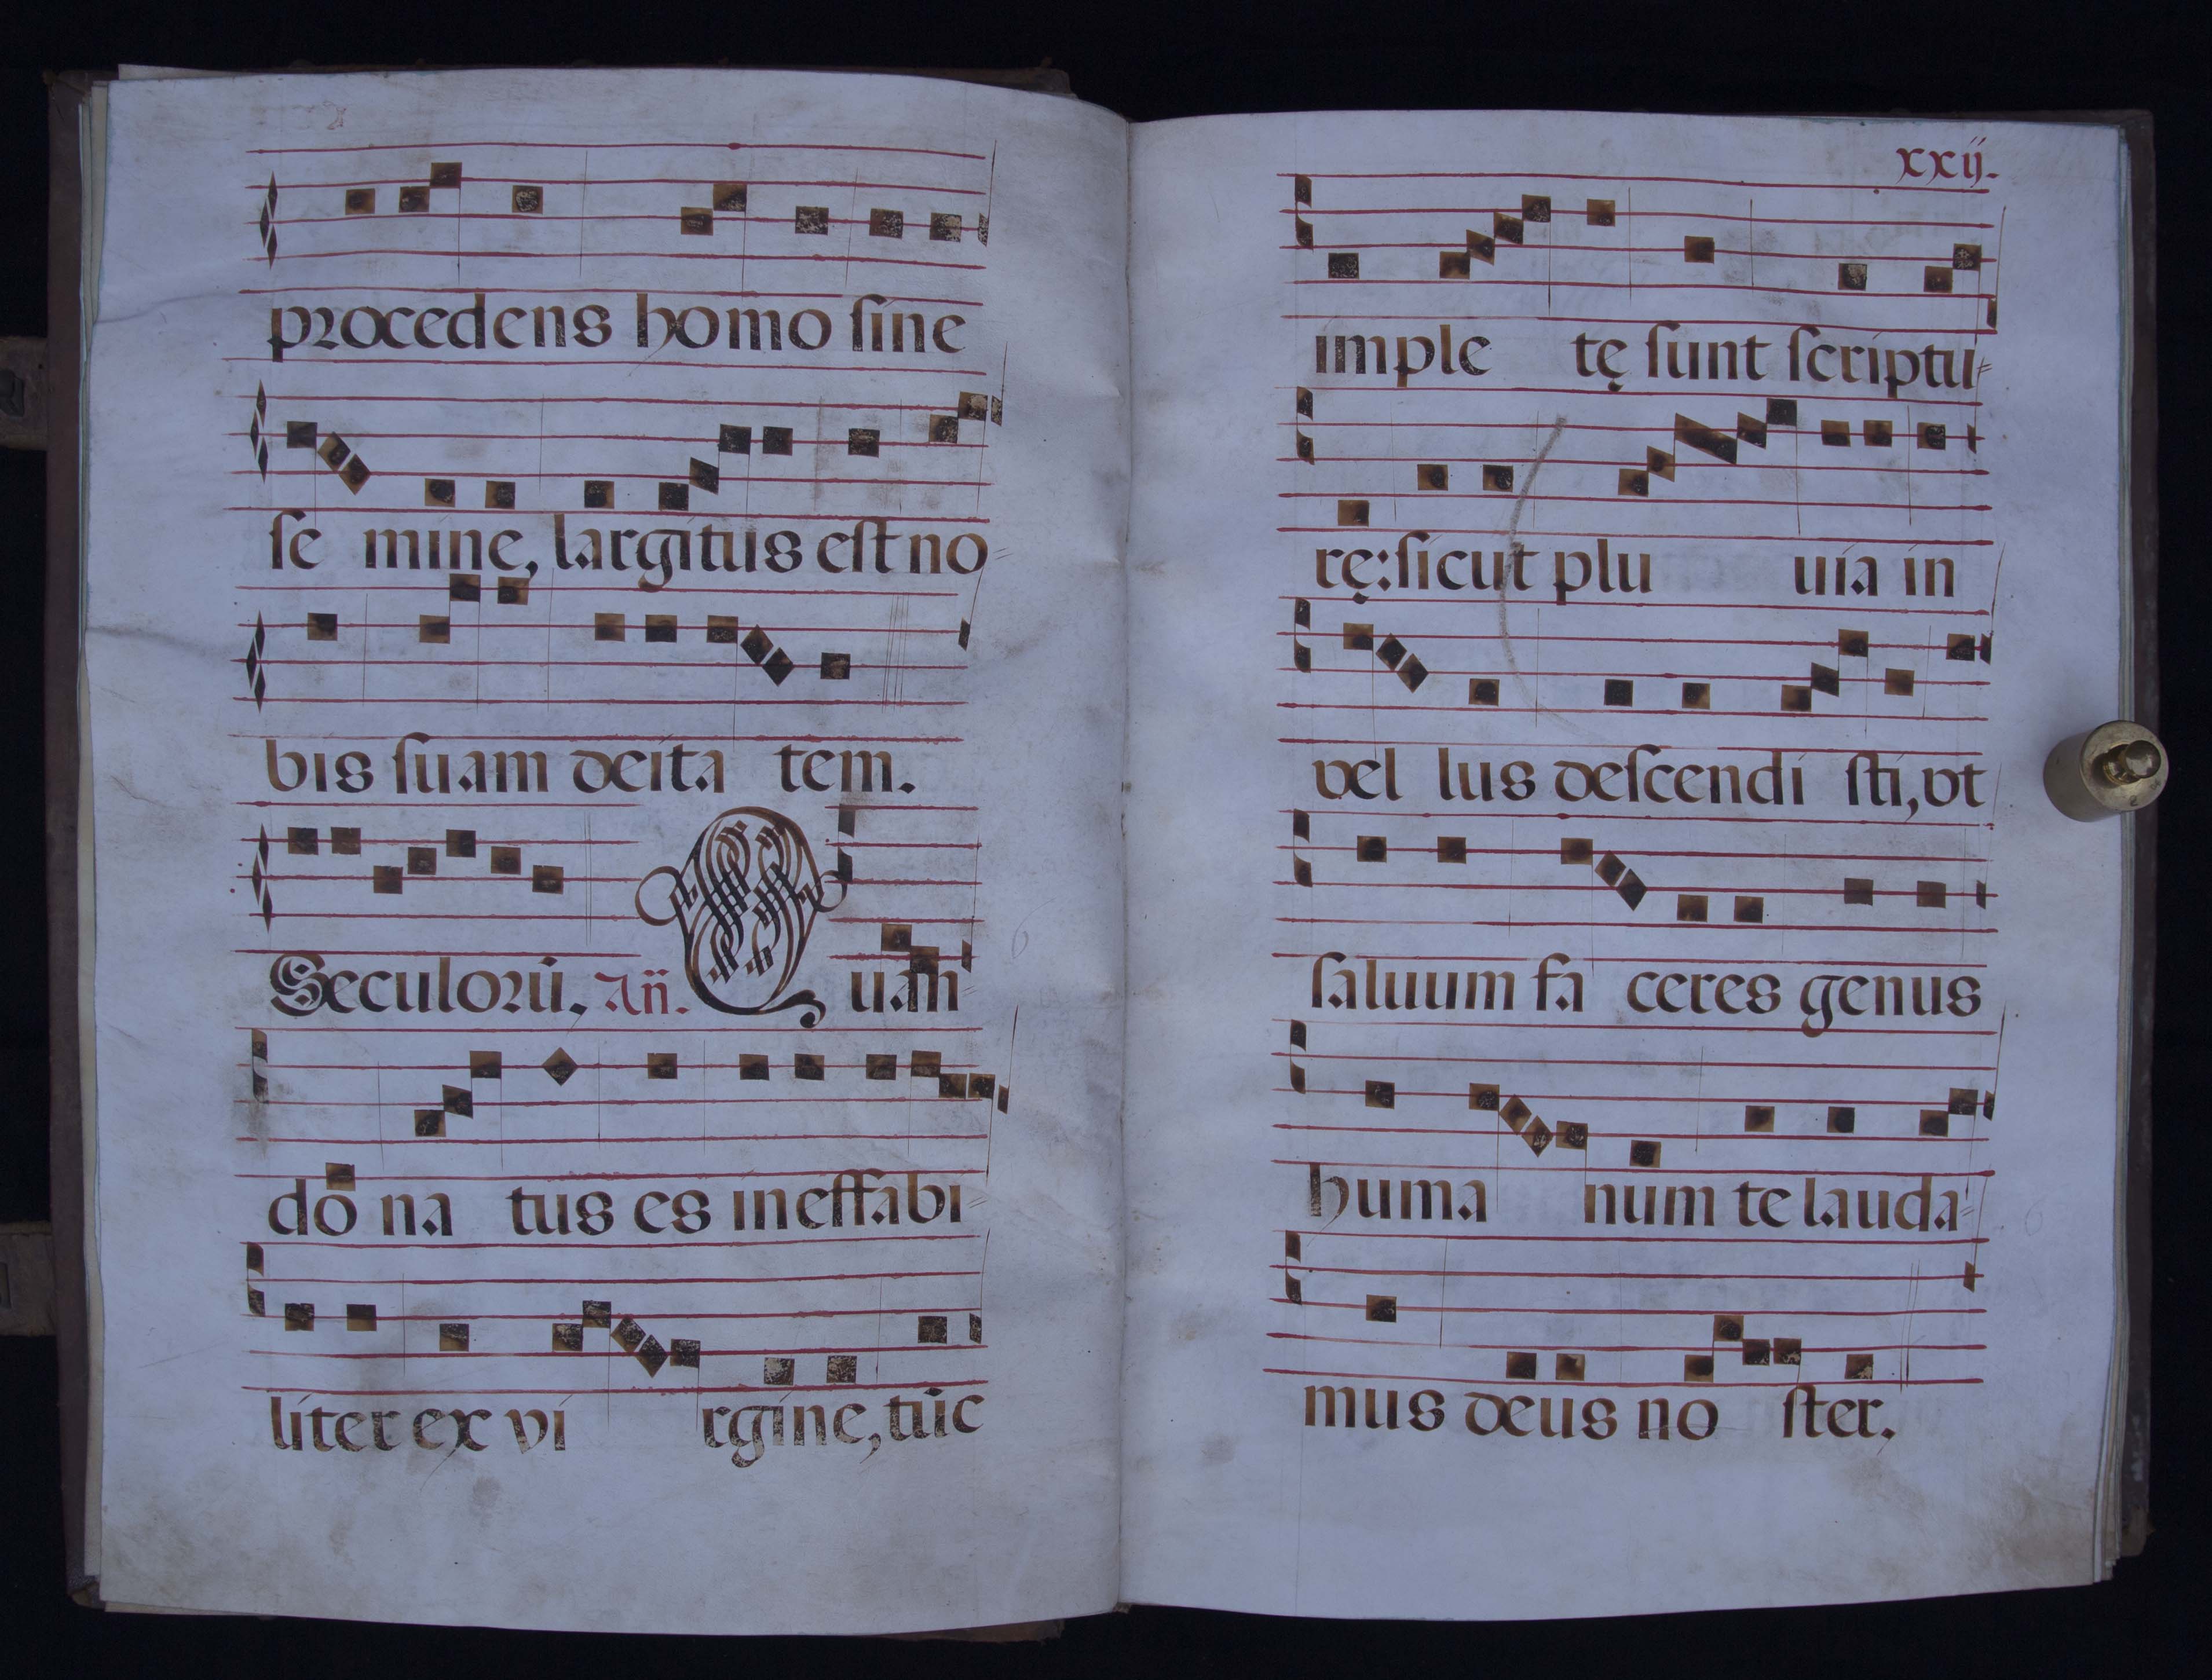 procedens homo ſine
ſe mine, largitus eſt no=
bis ſuam deita tem.
Seculorū. Añ. Quan
do na tus es ineffabi=
liter ex vi rgine, tūc
xxij.
imple tę ſunt ſcriptu=
rę: ſicut plu uia in
vel lus deſcendi ſti, vt
ſaluum fa ceres genus
huma num te lauda=
mus deus no ſter.